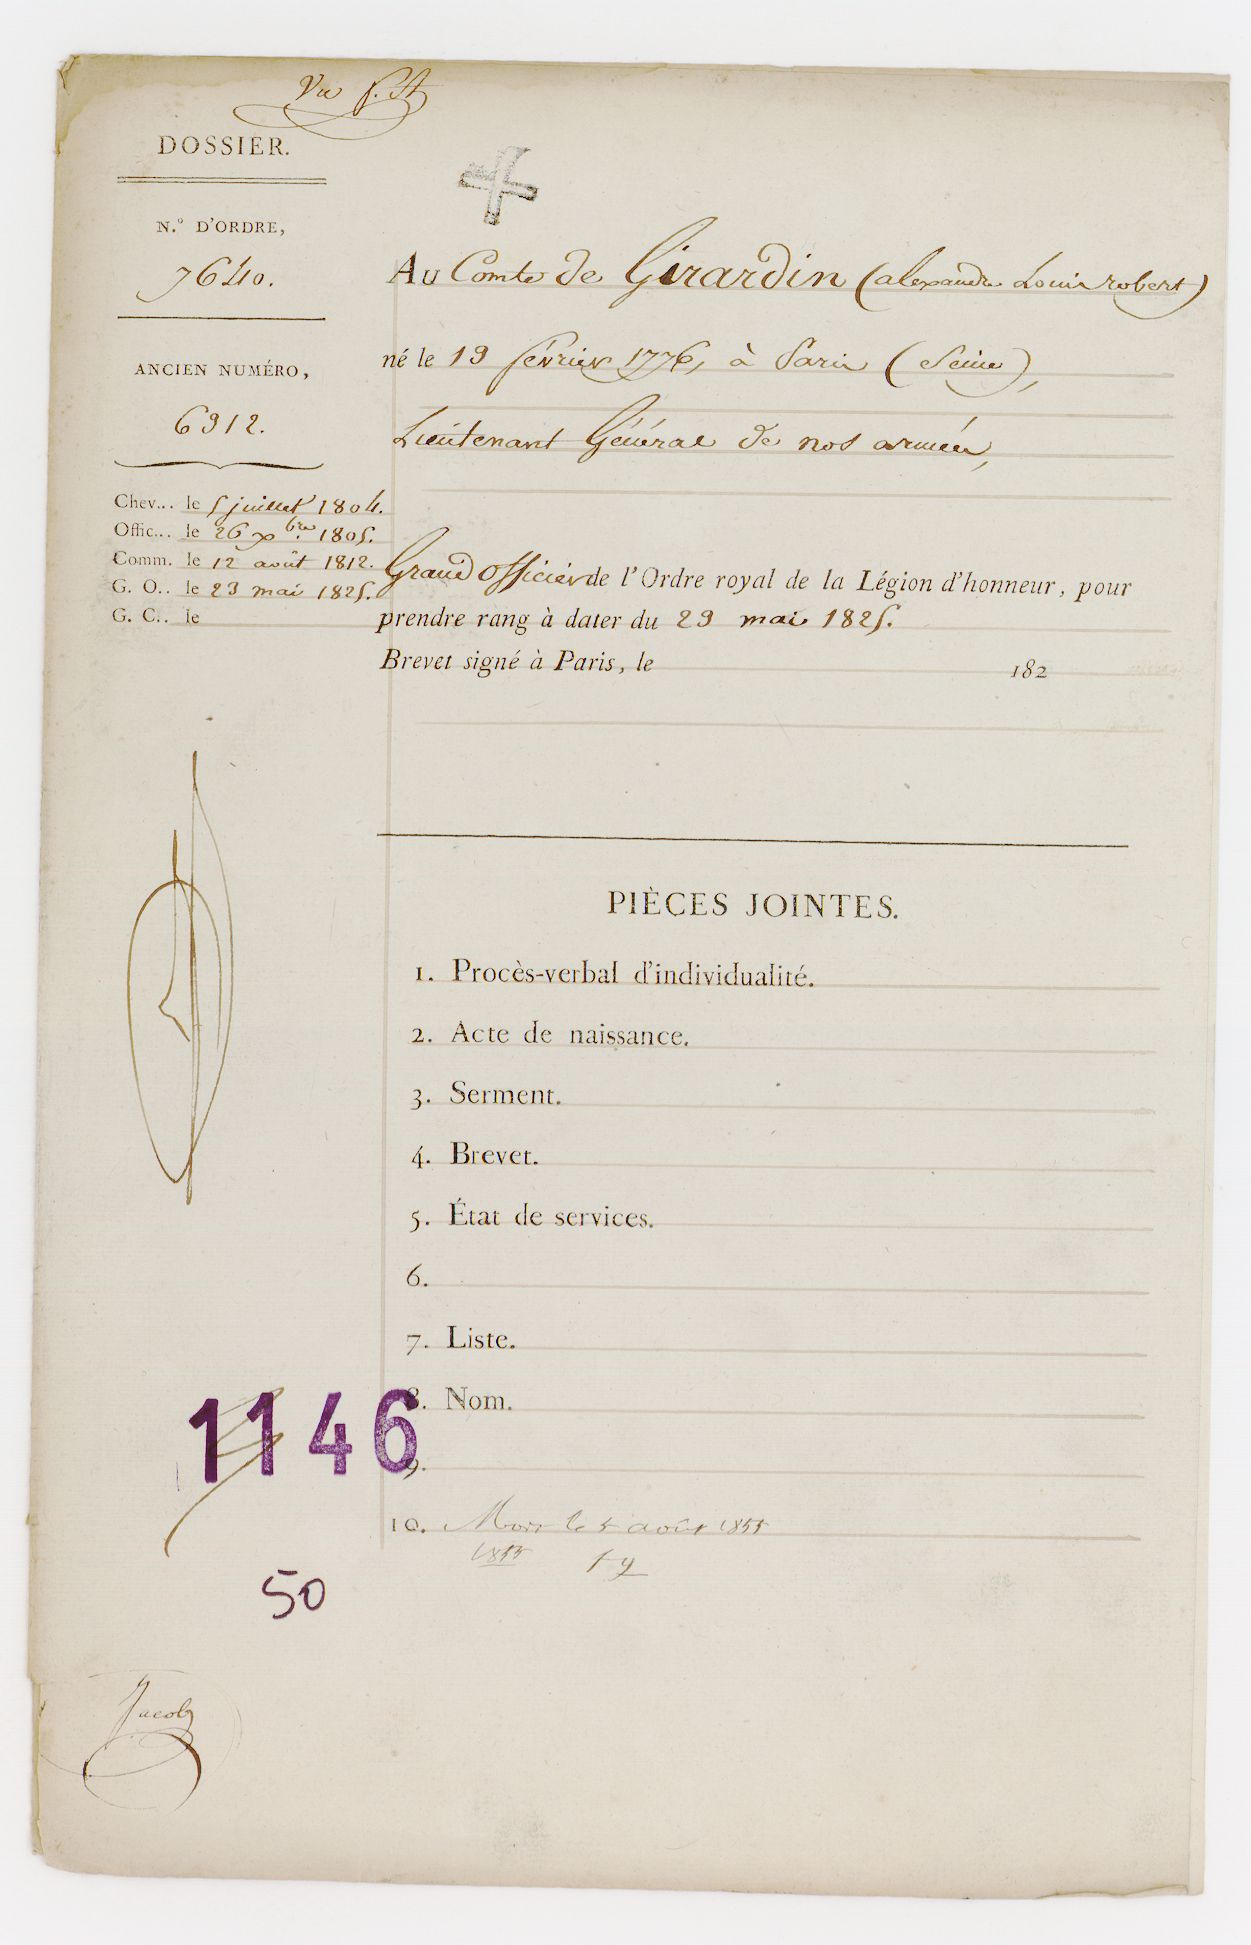 Vu
DOSSIER.
N.° D'ORDRE,
7640.
ANCIEN NUMÉRO,
6912.
Chev... le 5 juillet 1804.
Offic... le 26 Xbre. 1805.
Comm. le 12 août 1812.
G. O.. le 23 mai 1825.
G. C.. le
Au Comte de Girardin (alexandre Louis robert)
né le 19 février 1776, à Paris (Seine),
Lieutenant Général de nos armées,
Grand officier de l'Ordre royal de la Légion d'honneur, pour
prendre rang à dater du 23 mai 1825.
Brevet signé à Paris, le 182
PIÈCES JOINTES.
1. Procès-verbal d'individualité.
2. Acte de naissance.
3. Serment.
4. Brevet.
5. État de services.
6.
7. Liste.
8. Nom.
9.
10. Mort le 5 août 1855
1855
1146
50
Jacob